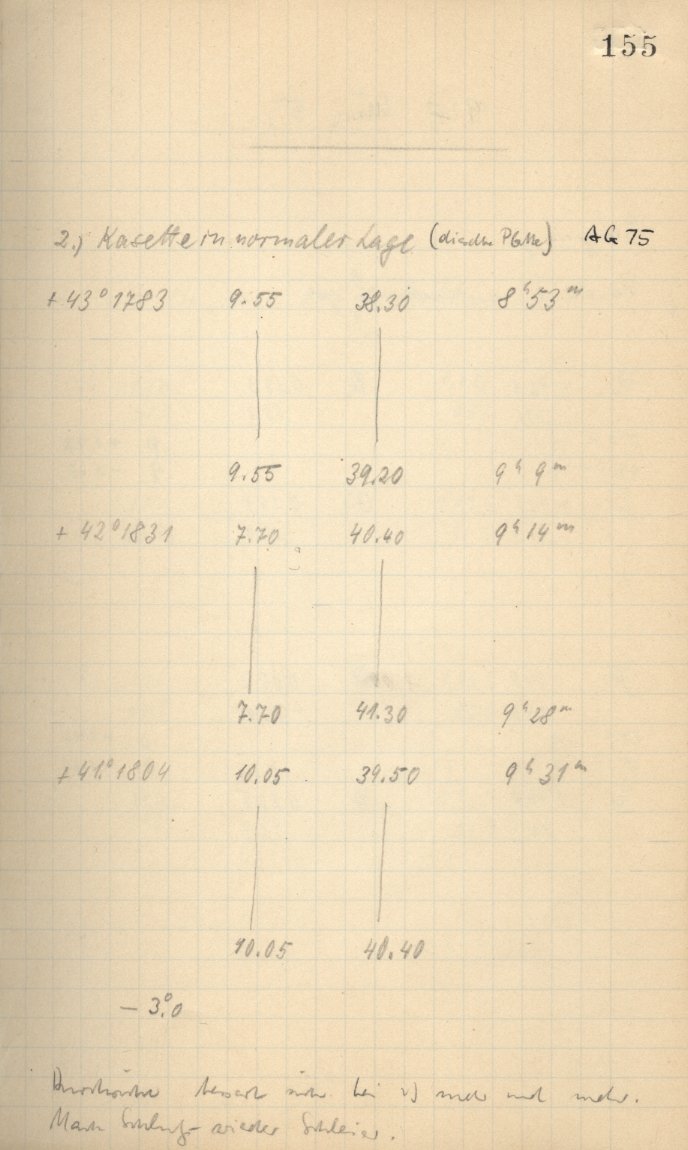 155
2.) Kasette in normaler Lage (dieselbe Platte) AG 75
+ 43° 1783 9.55 38.30 8ʰ 53ᵐ
9.55 39.20 9ʰ 9ᵐ
+ 42° 1831 7.70 40.40 9ʰ 14ᵐ
7.70 41.30 9ʰ 28ᵐ
+ 41° 1804 10.05 39.50 9ʰ 31ᵐ
10.05 40.40
− 3°.0
bessert sich bei 2) mehr und mehr.
Nach Schluß wieder Schleier.